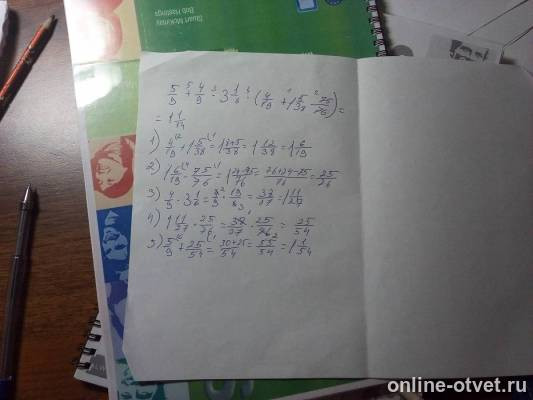 Stuart McKinlay
Bob Hastings
5/9 + 4/9 · 3 1/6 · (4/19 + 1 5/38 - 75/76) =
= 1 1/
1) 4/19 + 1 5/38 = 1 8+5/38 = 1 /38 = 1 6/19
2) 1 6/19 - 75/76 = 1 24-75/76 = 76+24-75/76 = 25/76
3) 4/9 · 3 1/6 = 4/9 · 19/6 = /27 = 1 11/27
4) 1 11/27 · 25/76 = 38/27 · 25/76 = 25/54
5) 5/9 + 25/54 = 30+25/54 = 55/54 = 1 1/54
online-otvet.ru